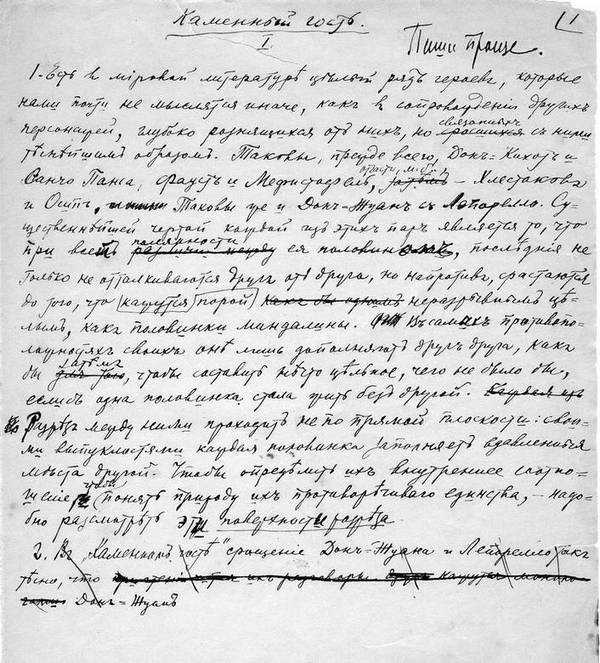 Каменный гость.
1
I.
Пиши проще.
1. Есть в мiровой литературѣ цѣлый рядъ героевъ, которые
нами почти не мыслятся иначе, какъ в сопровожденiи другихъ
персонажей, глубоко разнящихся отъ нихъ, но связанныхъ сросшихся съ ними
тѣснѣйшимъ образомъ. Таковы, прежде всего, Донъ-Кихотъ и
Санчо Панса, Фаустъ и Мефистофель, затѣмъ – Хлестаковъ
и Осипъ, Таковы же и Донъ-Жуан съ Лепорелло. Су-
щественнѣйшей чертой каждой изъ этихъ паръ является то, что
при всей полярности различiи между ея половинокъ, послѣднiя не
только не отталкиваются другъ отъ друга, но напротивъ, срастаются
до того, что кажутся порой какъ бы однимъ неразрывнымъ цѣ-
лымъ, какъ половинки миндалины. Въ самыхъ противопо-
ложностяхъ своихъ онѣ лишь дополняютъ другъ друга, какъ
бы затѣмъ для того, чтобы составить нѣчто цѣльное, чего не было бы,
еслибъ одна половинка стала жить безъ другой. Каждая изъ
Разрѣзъ между ними проходитъ не по прямой плоскости: свои-
ми выпуклостями каждая половинка заполняетъ вдавленныя
мѣста другой. Чтобы опредѣлить ихъ внутреннее соотно-
шенiе, чтобы понять природу ихъ противорѣчиваго единства, – надо-
бно разсмотрѣть эти поверхности разрѣза.
2. Въ "Каменномъ гостѣ" сращенiе Донъ-Жуана и Лепорелло такъ
тѣсно, что ихъ разговоры кажутся
Донъ-Жуанъ